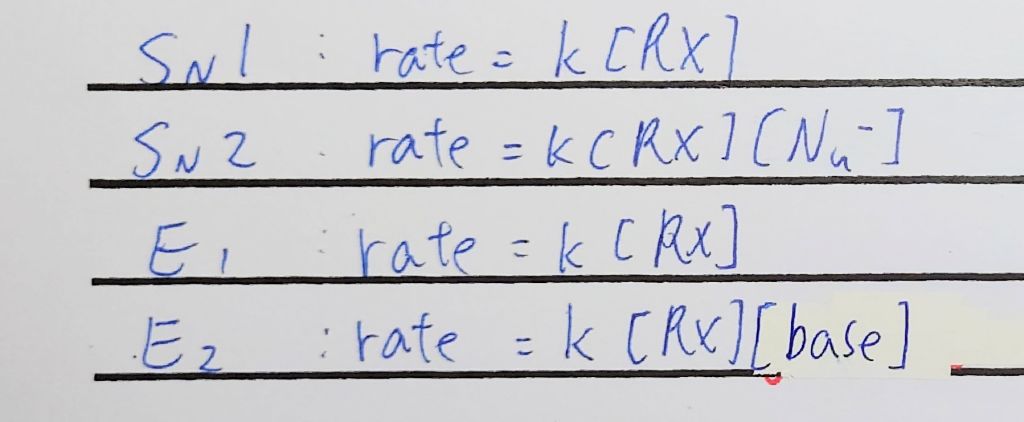 SN1 : rate = k[RX]
SN2 : rate = k[RX][Nu-]
E1 : rate = k[RX]
E2 : rate = k[RX][base]